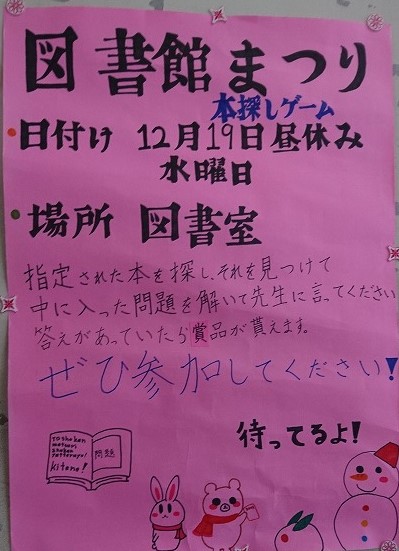 図書館まつり
本探しゲーム
日付け 12月19日昼休み
水曜日
場所 図書室
指定された本を探し、それを見つけて
中に入った問題を解いて先生に言ってください
答えがあっていたら賞品が貰えます。
ぜひ参加してください!
待ってるよ!
問題
kitene!